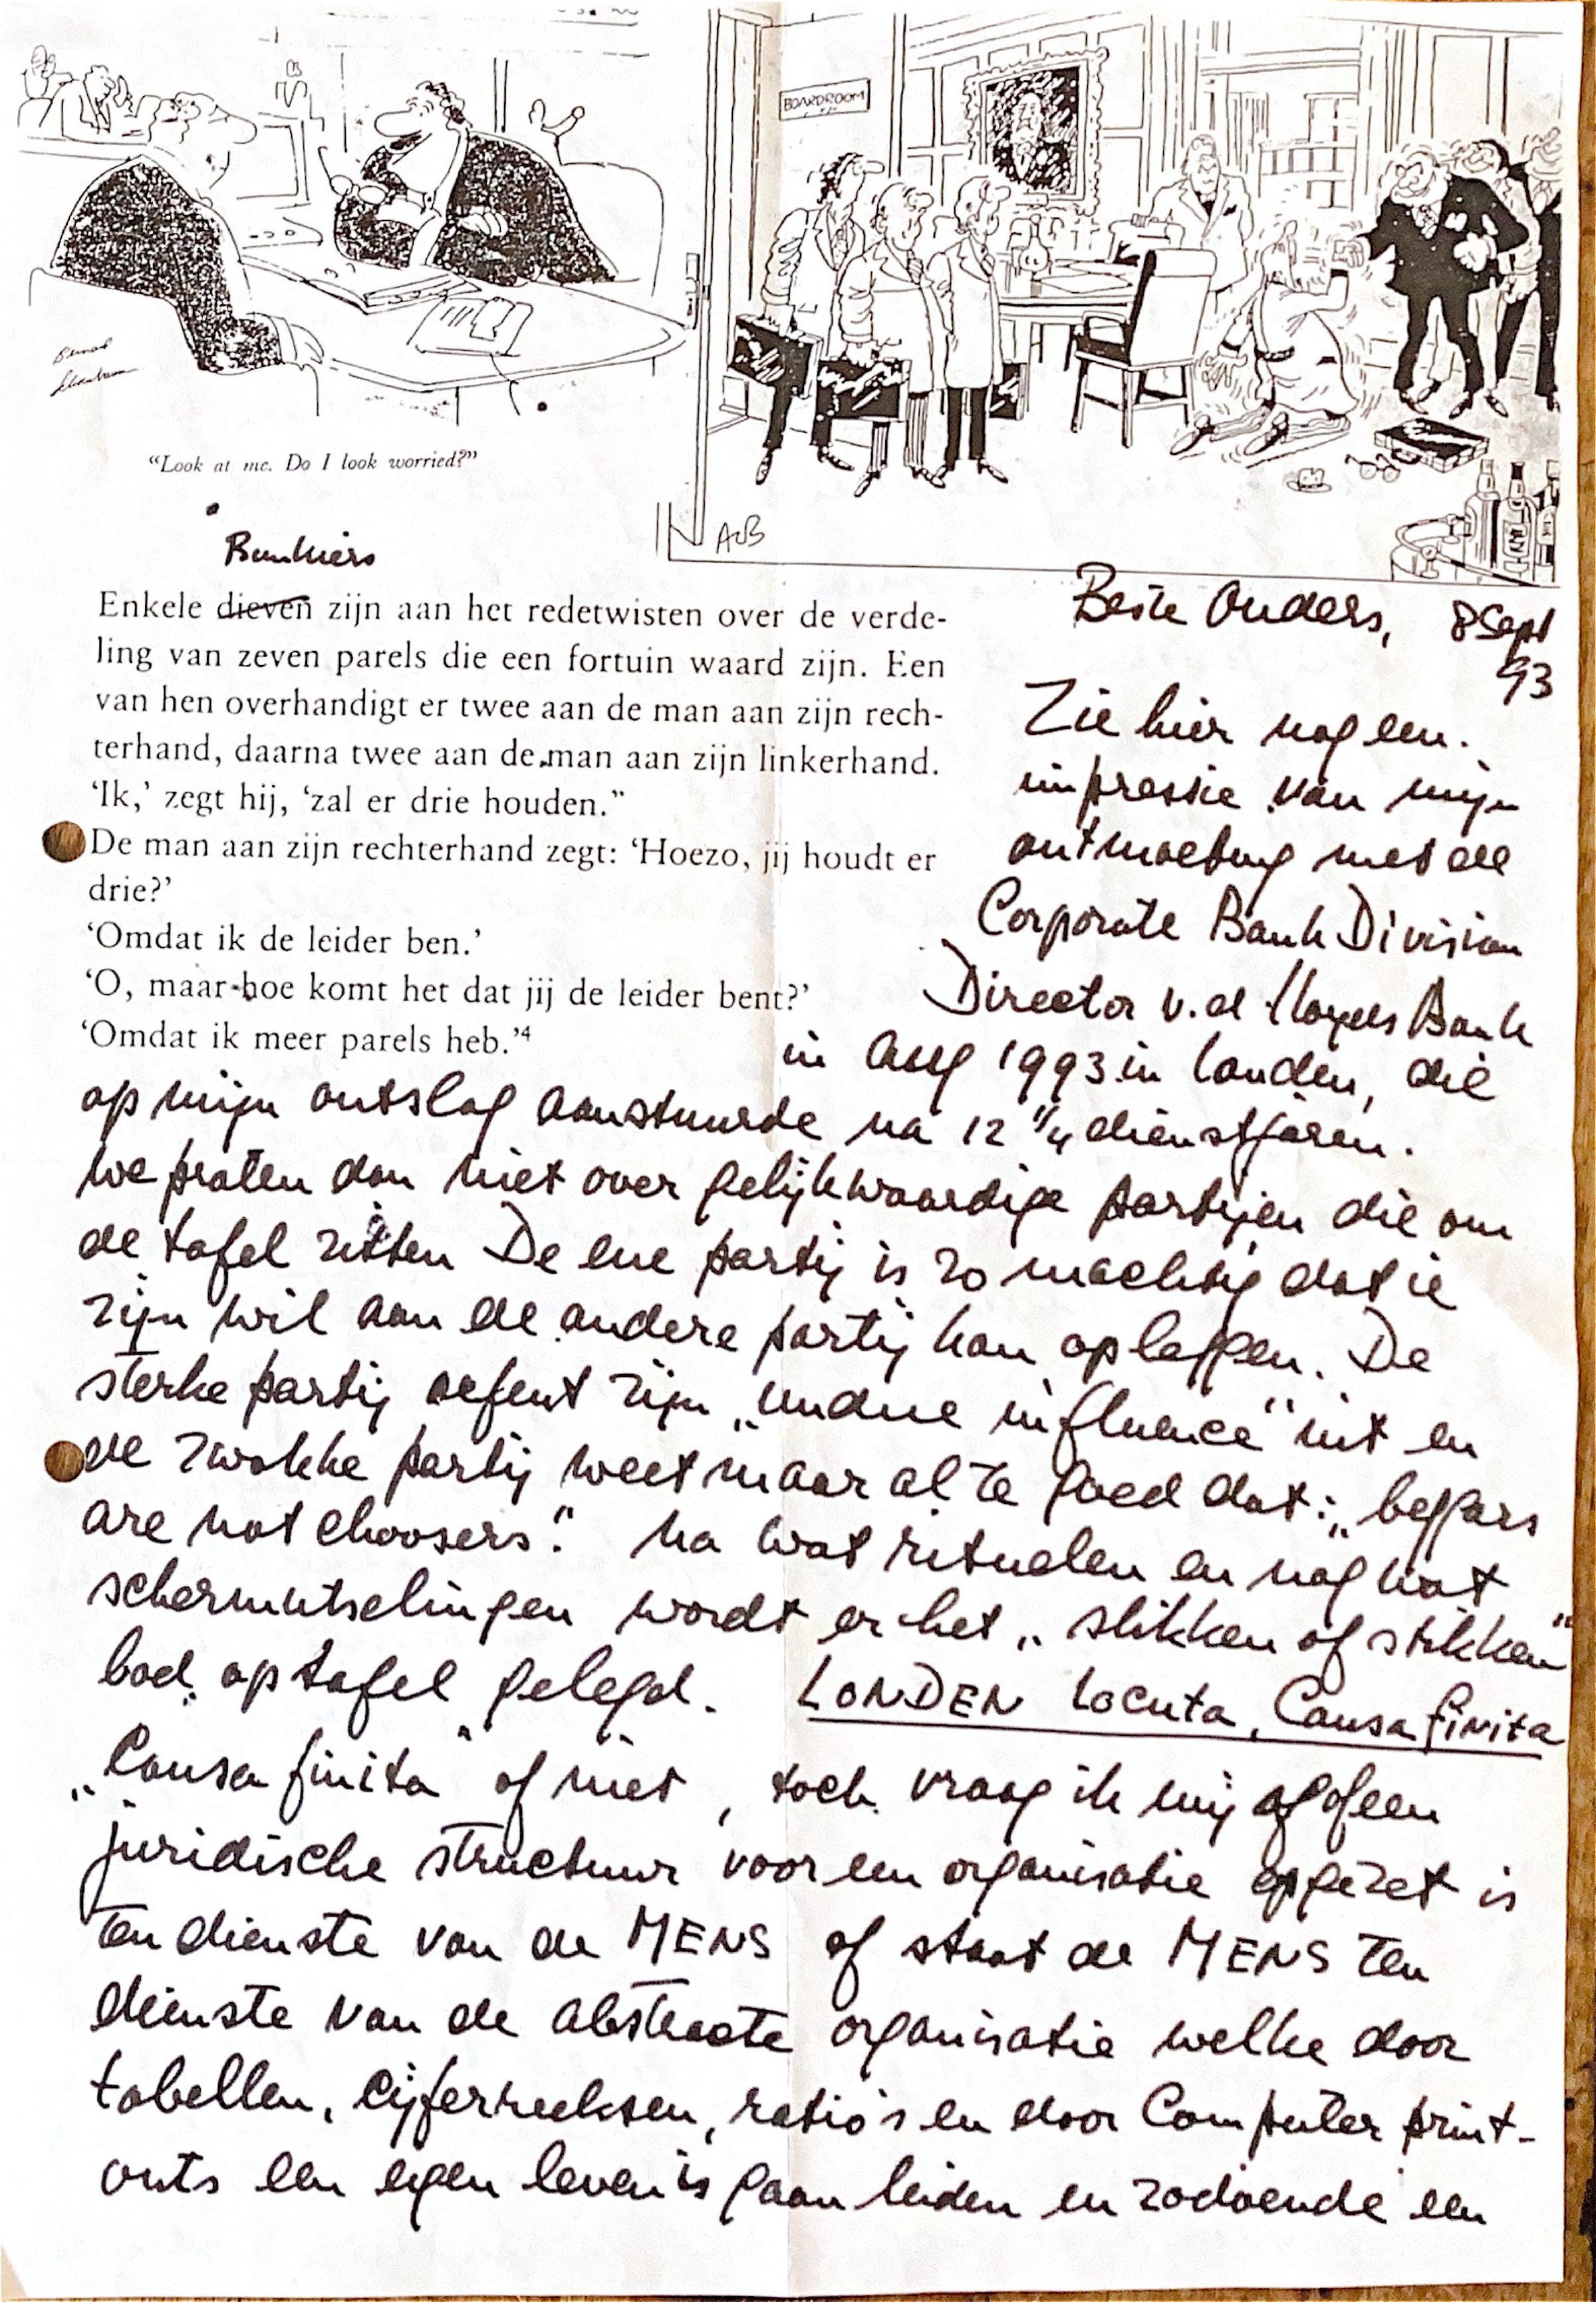 BOARDROOM
"Look at me. Do I look worried?"
AvB
Bankiers
Enkele dieven zijn aan het redetwisten over de verde-
ling van zeven parels die een fortuin waard zijn. Een
van hen overhandigt er twee aan de man aan zijn rech-
terhand, daarna twee aan de man aan zijn linkerhand.
'Ik,' zegt hij, 'zal er drie houden."
De man aan zijn rechterhand zegt: 'Hoezo, jij houdt er
drie?'
'Omdat ik de leider ben.'
'O, maar hoe komt het dat jij de leider bent?'
'Omdat ik meer parels heb.'4
Beste Ouders, 8 Sept
93
Zie hier nog een
impressie van mijn
ontmoeting met de
Corporate Bank Division
Director v.d Lloyds Bank
in Aug 1993 in Londen, die
op mijn ontslag aanstuurde na 12 1/4 dienstjaren.
We praten dan niet over gelijkwaardige partijen die om
de tafel zitten De ene partij is zo machtig dat ie
zijn wil aan de andere partij kan opleggen. De
sterke partij oefent zijn „undue influence" uit en
de zwakke partij weet maar al te goed dat: „beggars
are not choosers." Na wat rituelen en nog wat
schermutselingen wordt er het „slikken of stikken"
bod op tafel gelegd. LONDEN locuta, Causa finita
„Causa finita" of niet, toch vraag ik mij af of een
juridische structuur voor een organisatie opgezet is
ten dienste van de MENS of staat de MENS ten
dienste van de abstracte organisatie welke door
tabellen, cijferreeksen, ratio's en door Computer print-
outs een eigen leven is gaan leiden en zodoende een